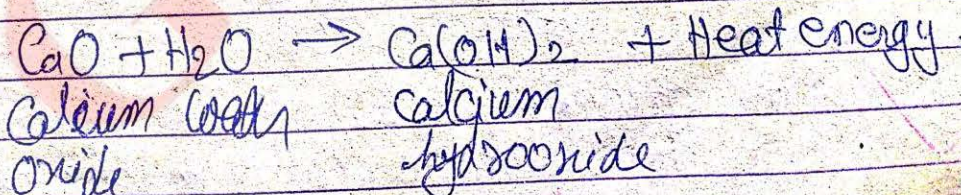 CaO + H2O → Ca(OH)2 + Heat energy.
Calcium water calcium
oxide hydrooxide